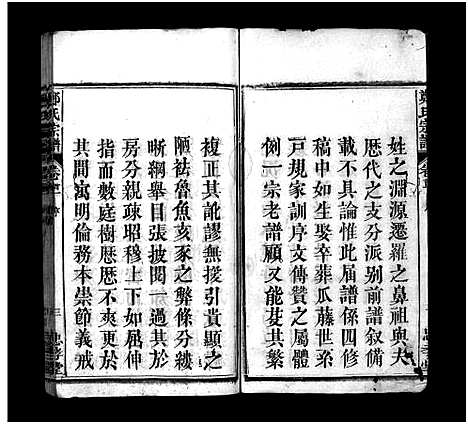 姓之淵源遷羅之鼻祖與夫
歷代之支分派別前譜叙備
稿中茲不具論惟此屆譜係四修
戶規家訓序文傳贊之屬體
例一宗老譜顧又能芟其繁
複正其訛謬無援引貴顯之
陋祛魯魚亥豕之弊條分縷
晰綱舉目張披閱一過其於
房分親疎昭穆上下如屈伸
指而數庭樹歷歷不爽而於
其間寓明倫務本崇節義戒
鄭氏宗譜